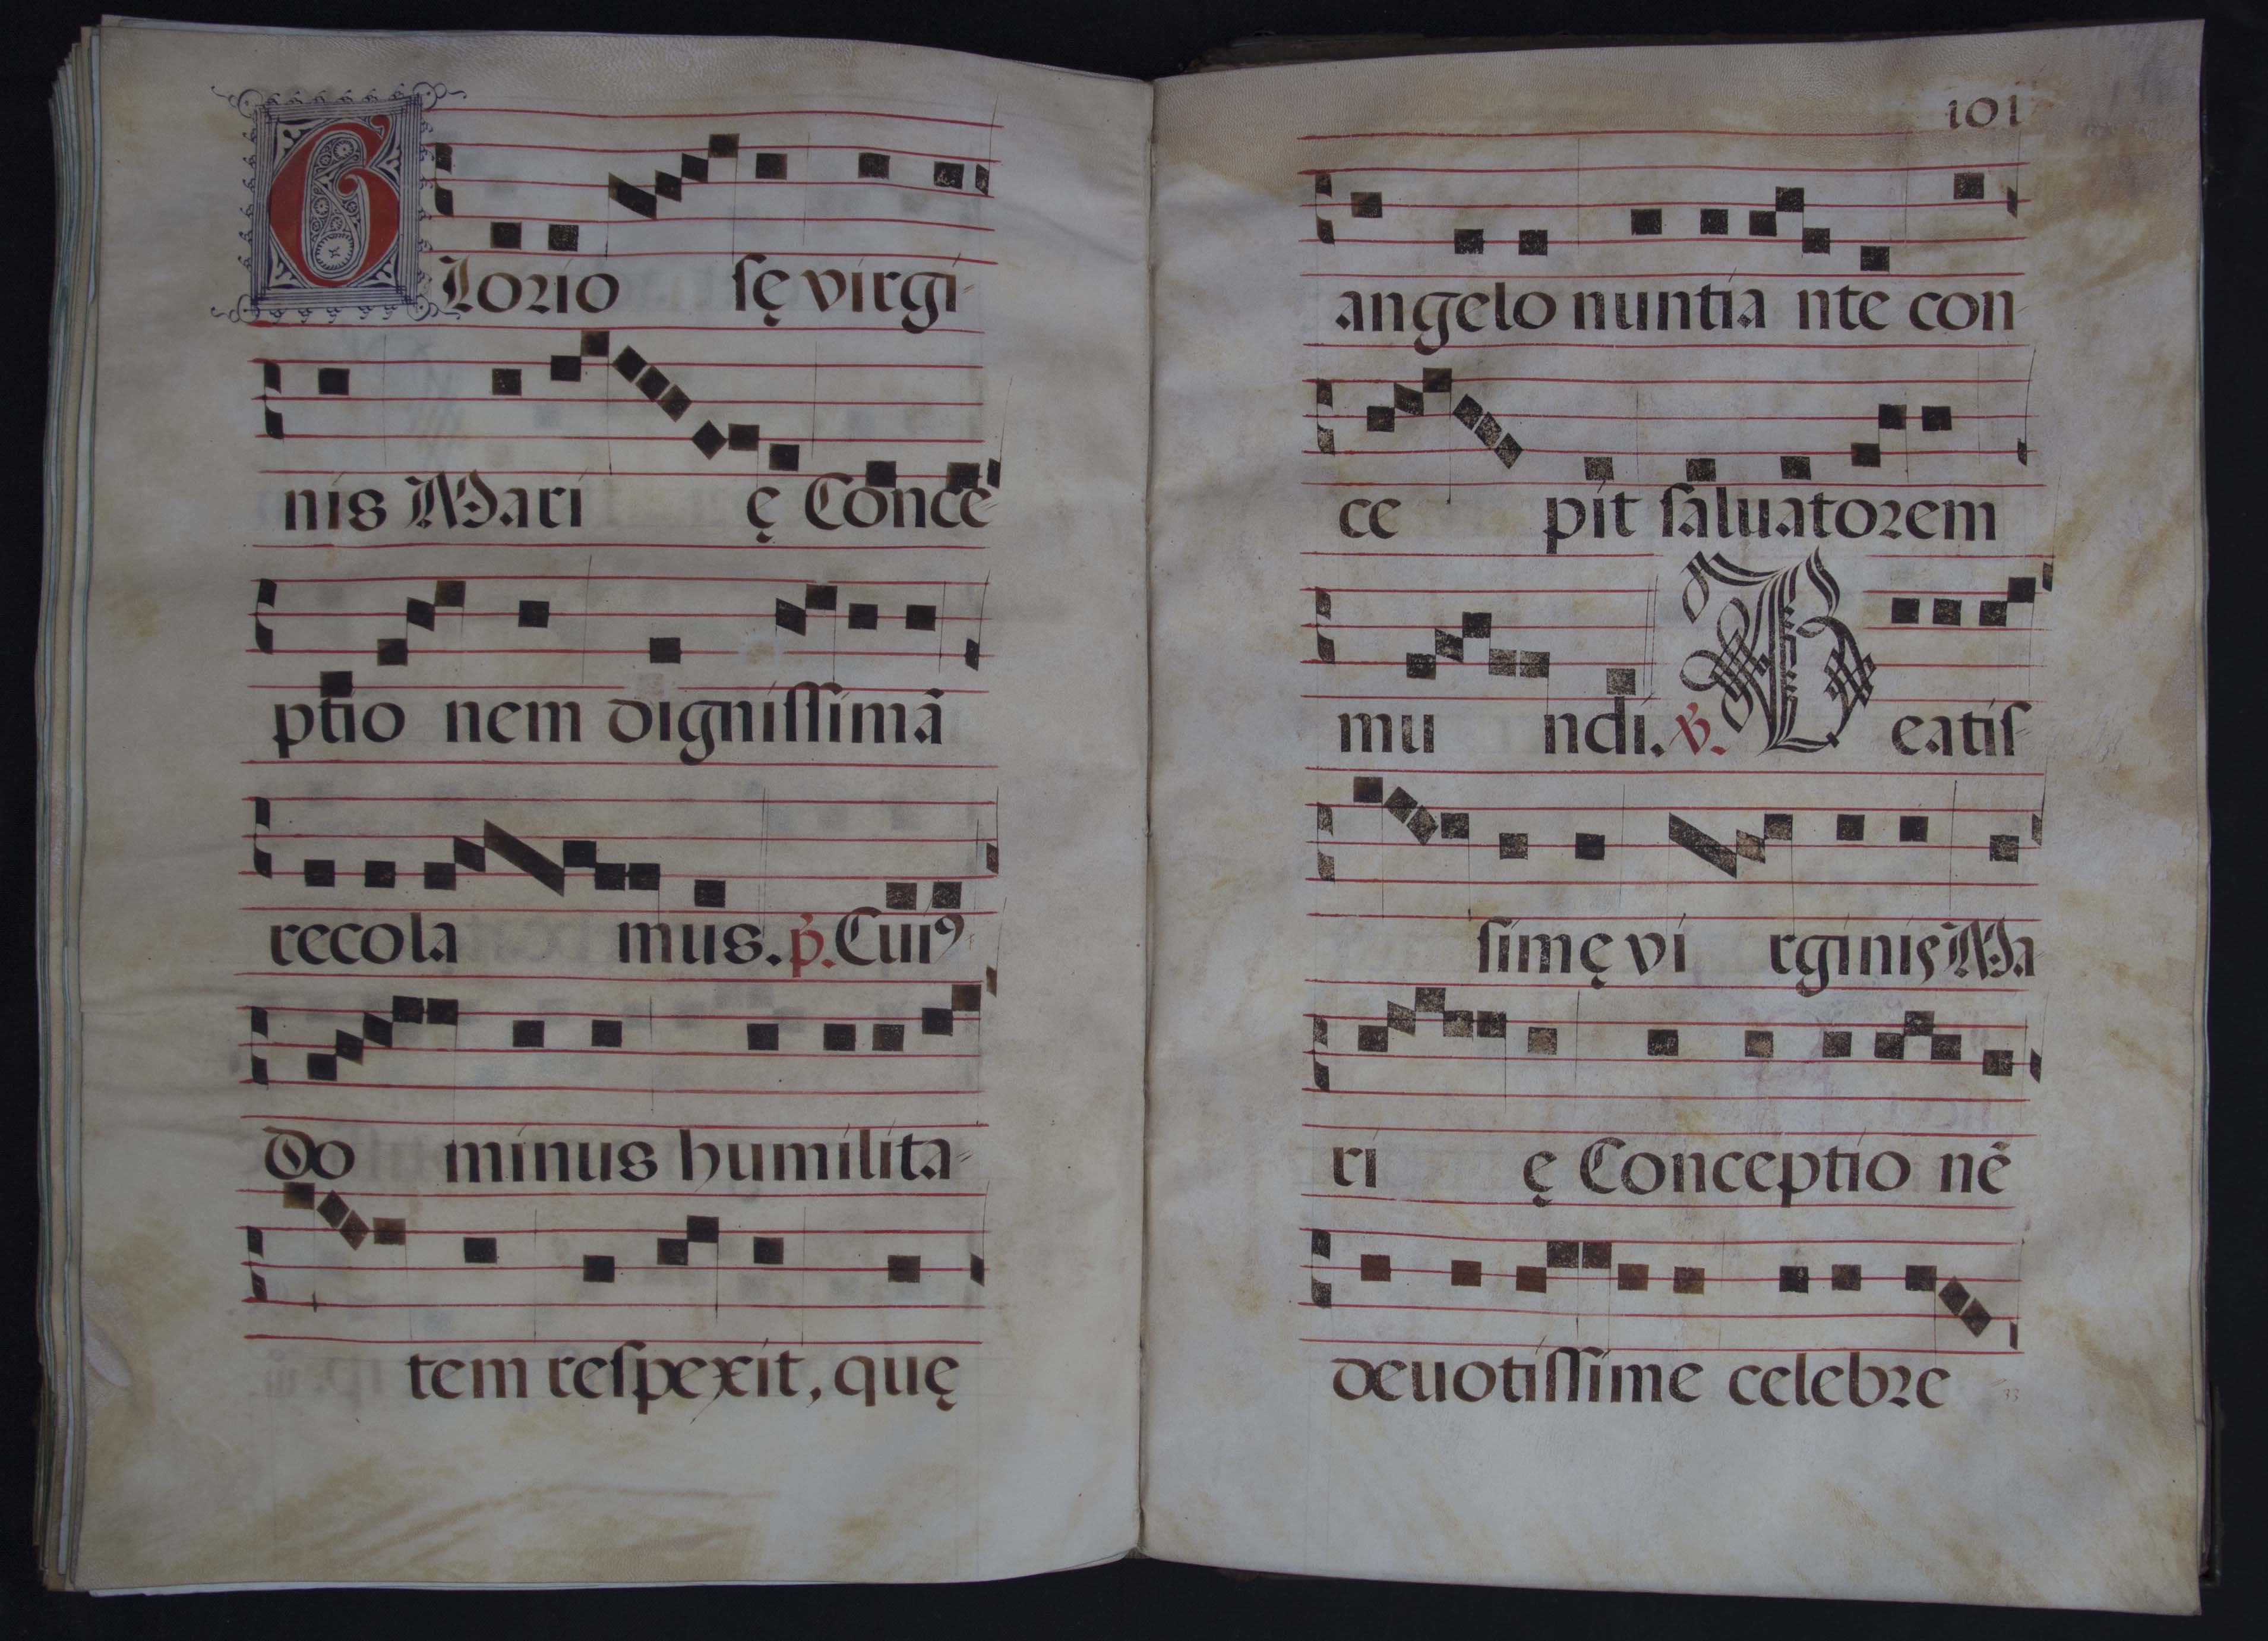 Glorio sę virgi-
nis Mari ę Conce-
ptio nem digniſſimã
recola mus. p̃. Cuiꝰ
Do minus humilita-
tem reſpexit, quę
101
angelo nuntia nte con-
ce pit ſaluatorem
mu ndi. ℣. Beatiſ-
ſimę vi rginis Ma
ri ę Conceptio nẽ
deuotiſſime celebre
33